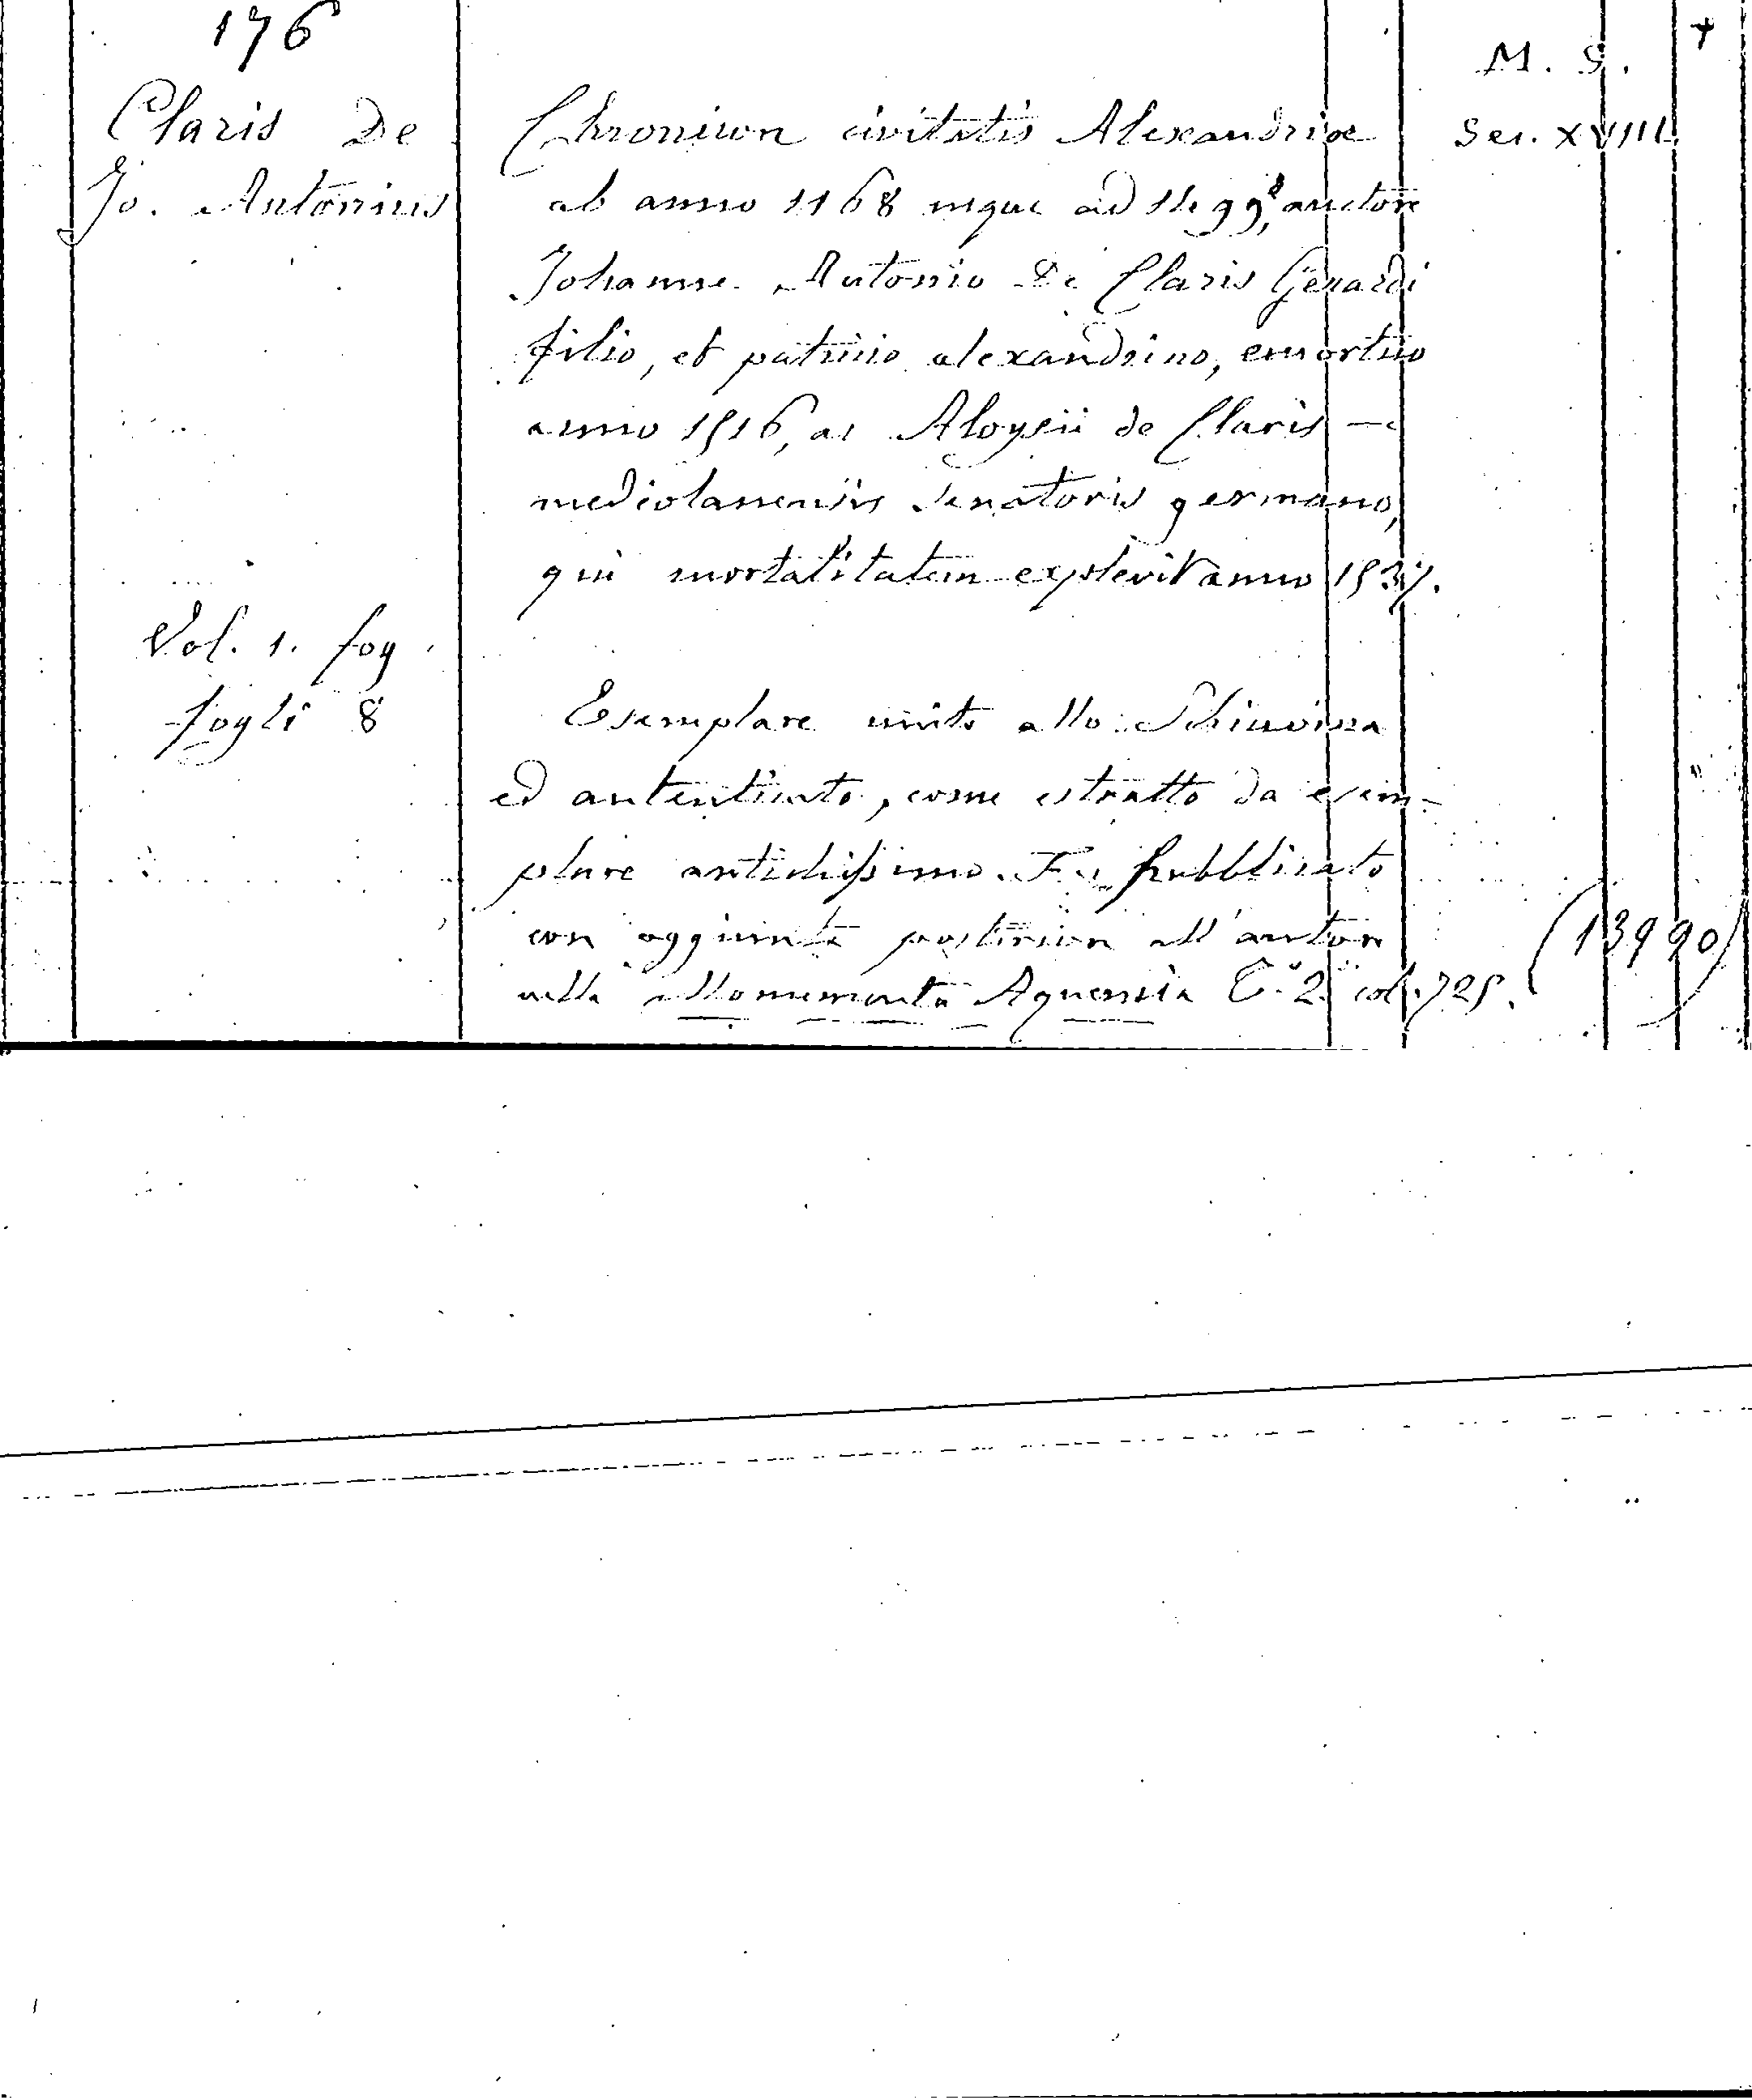 176
Claris De
Jo. Antonius
Vol. 1. fog.
fogli 8
Chronicon civitatis Alexandriæ
ab anno 1168 usque ad auctore
Johanne Antonio De Claris Gerardi
filio, et patricio alexandrino, emortuo
anno 1516, ac Aloysii de Claris —
mediolanensis Senatoris germano,
qui mortalitatem explevit anno 1537.
Esemplare unito allo Schiavina
ed autenticato, come estratto da esem-
plare antichissimo. Fu pubblicato
con aggiunte posteriori all'autore
nella Monumenta Aquensia T. 2. col. 725.
M. S.
Sec. XVIII.
(13990)